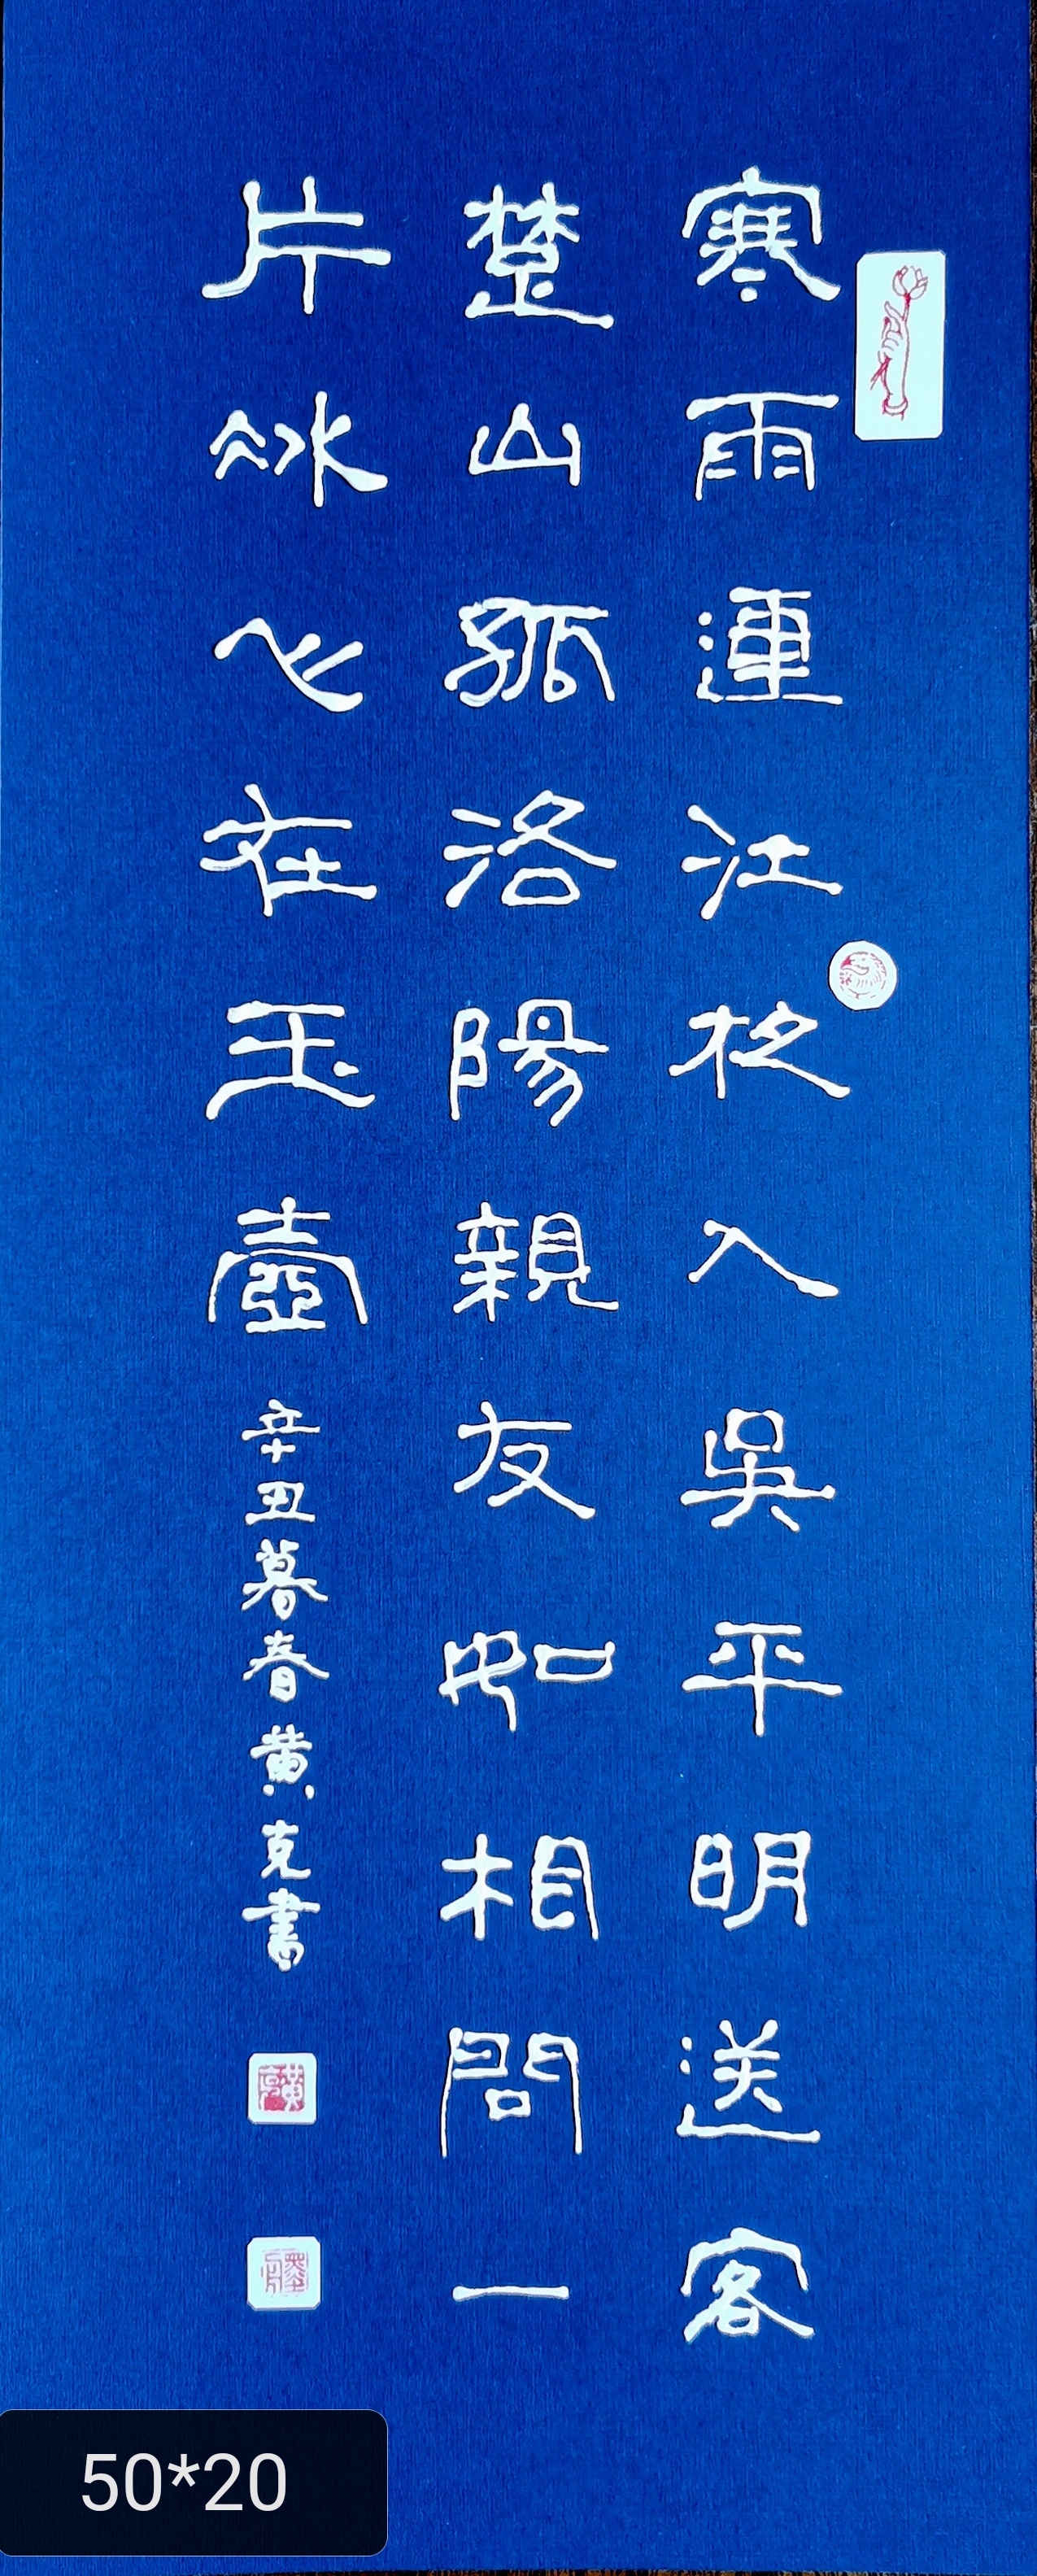 寒雨連江夜入吳平明送客
楚山孤洛陽親友如相問一
片冰心在玉壺
辛丑暮春黃克書
50*20